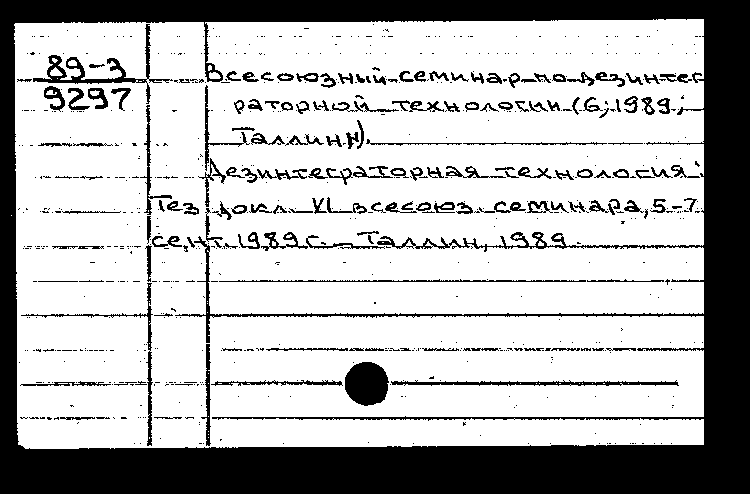 89-3
9297
Всесоюзный семинар по дезинтег
раторной технологии (6; 1989;
Таллинн).
Дезинтеграторная технология:
Тез докл. VI всесоюз. семинара, 5-7
сент. 1989 г. — Таллин, 1989.